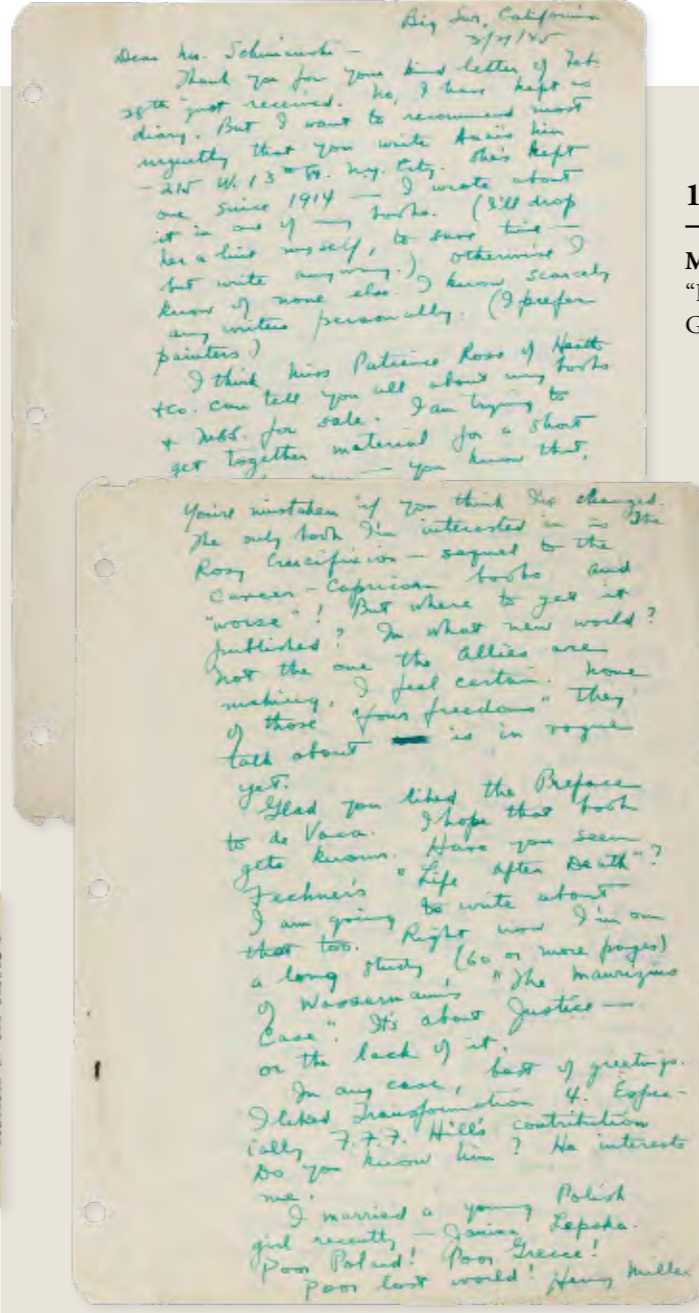 Big Sur, California
3/27/45
Dear Mr. Schimanski –
Thank you for your kind letter of Feb.
28th just received. No, I have kept no
diary. But I want to recommend most
urgently that you write Anais Nin
– 215 W. 13th St. N.Y. City. She's kept
one since 1914 – I wrote about
it in one of my books. (I'll drop
her a line myself, to save time –
but write anyway.) Otherwise I
know of none else. I know scarcely
any writers personally. (I prefer
painters)
I think Miss Patience Ross of Heath
+ Co. can tell you all about my books
+ mss. for sale. I am trying to
get together material for a short
– you know that,
You're mistaken if you think I've changed.
The only book I'm interested in is The
Rosy Crucifixion – sequel to the
Cancer – Capricorn books and
"worse"! But where to get it
published? In what new world?
Not the one the Allies are
making, I feel certain. None
of those "four freedoms" they
talk about is in vogue
yet.
Glad you liked the Preface
to de Vaca. I hope that book
gets known. Have you seen
Fechner's "Life After Death"?
I am going to write about
that too. Right now I'm on
a long study (60 or more pages)
of Wassermann's "The Maurizius
Case". It's about Justice –
or the lack of it.
In any case, best of greetings.
I liked Transformation 4. Espec-
ially 7.7.7. Hill's contribution
Do you know him? He interests
me.
I married a young Polish
girl recently – Janina Lepska.
Poor Poland! Poor Greece!
Poor lost world! Henry Miller
1
M
G